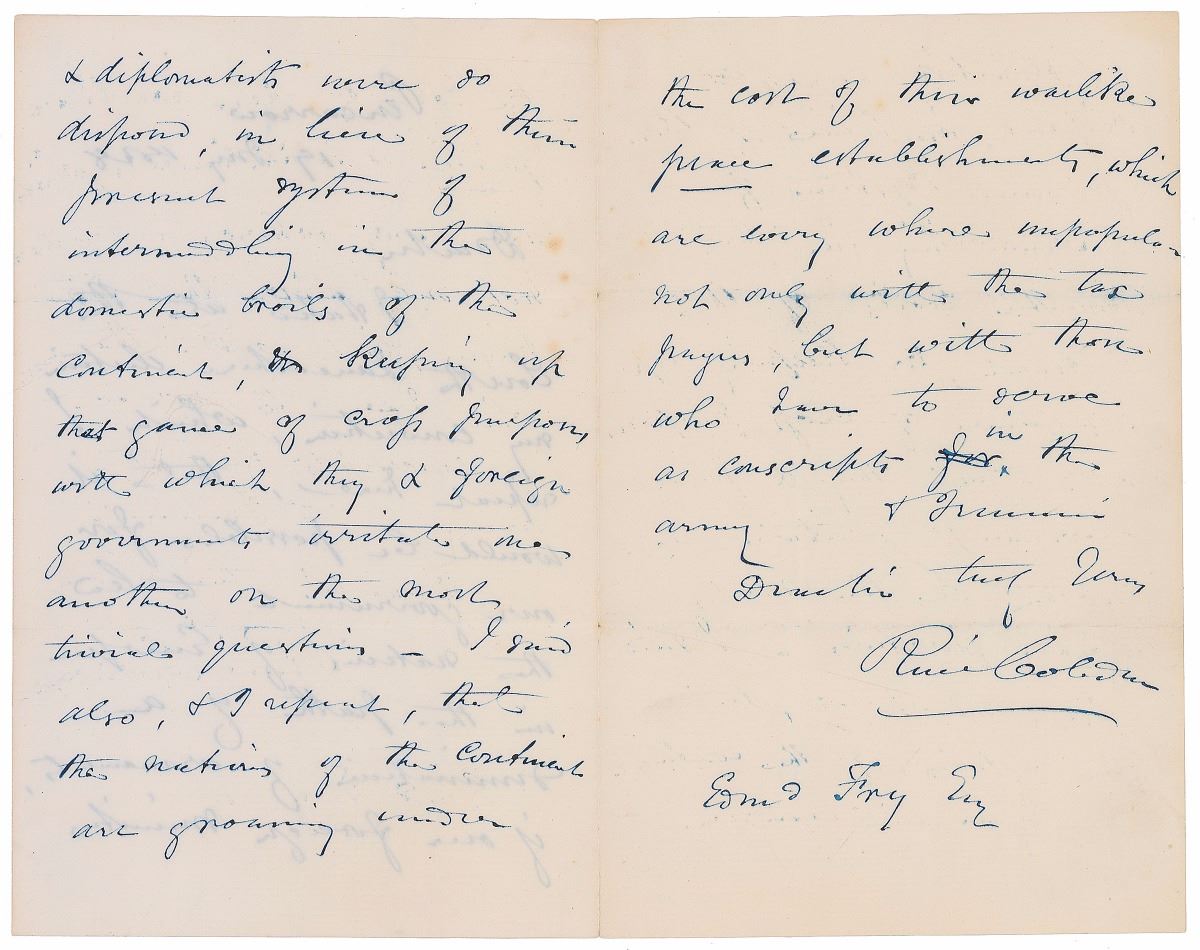 & diplomatists were so
disposed, in lieu of their
present system of
intermeddling in the
domestic broils of the
Continent, & keeping up
that game of cross purposes,
with which they & foreign
governments irritate one
another on the most
trivial questions – I said
also, & I repeat, that
the nations of the Continent
are groaning under
the cost of their warlike
peace establishments, which
are every where unpopular
not only with the tax
payers, but with those
who have to serve
as conscripts for in the
army & I remain
Dear Sir truly Yours
Rich Cobden
Edmd Fry Esq